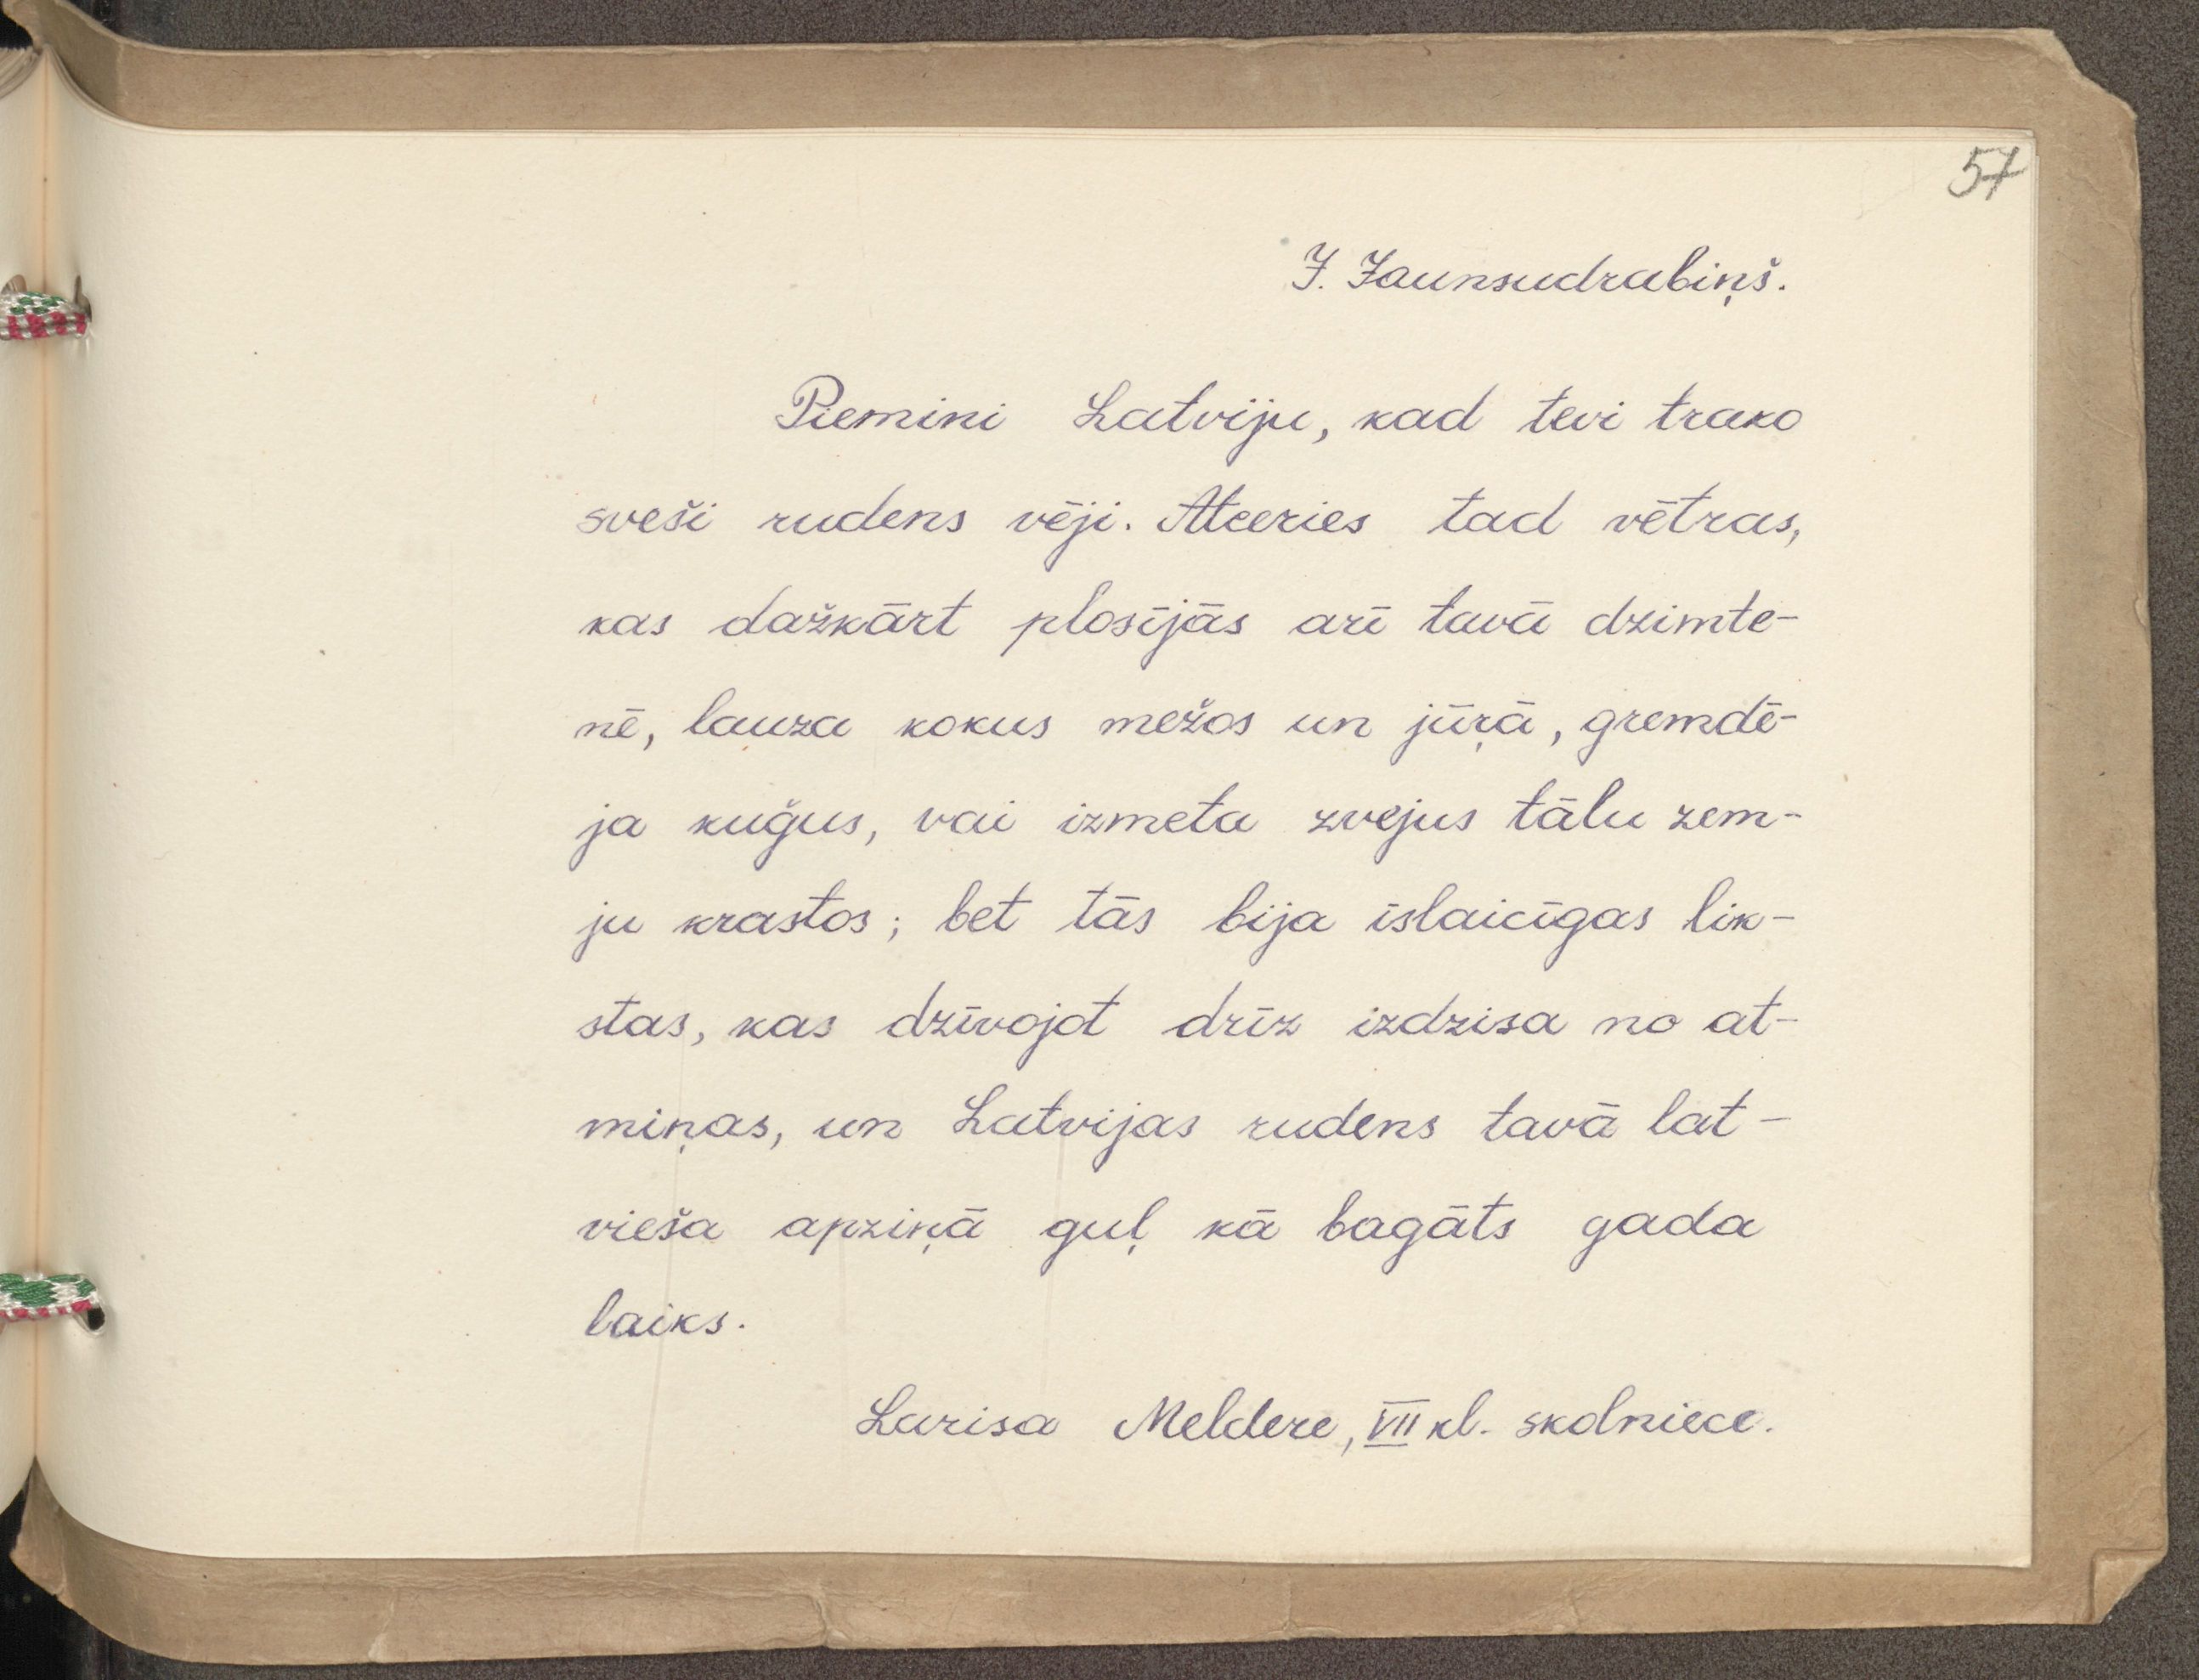 57
J. Jaunsudrabiņš.
Piemini Latviju, kad tevi trako
sveši rudens vēji. Atceries tad vētras,
kas dažkārt plosījās arī tavā dzimte-
nē, lauza kokus mežos un jūŗā, gremdē-
ja kuģus, vai izmeta zvejus tālu zem-
ju krastos; bet tās bija īslaicīgas lik-
stas, kas dzīvojot drīz izdzisa no at-
miņas, un Latvijas rudens tavā lat-
vieša apziņā guļ kā bagāts gada
laiks.
Larisa Meldere, VII kl. skolniece.